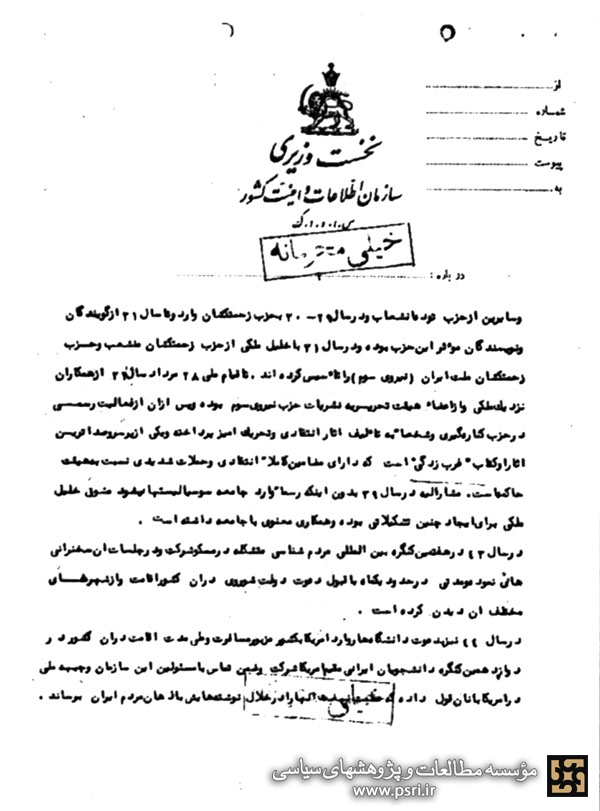 از
شماره
تاریخ
پیوست
به
نخست وزیری
سازمان اطلاعات و امنیت کشور
س.ا.و.ا.ک
خیلی محرمانه
درباره :
وسایرین از حزب توده انشعاب و در سال ۲۹-۳۰ بحزب زحمتکشان وارد و تا سال ۳۱ از گویندگان
ونویسندگان موثر این حزب بوده و در سال ۳۱ با خلیل ملکی از حزب زحمتکشان منشعب و حزب
زحمتکشان ملت ایران (نیروی سوم) را تاسیس کرده اند . تا قیام ملی ۲۸ مرداد سال ۳۲ از همکاران
نزدیک ملکی و از اعضاء هیئت تحریریه نشریات حزب نیروی سوم بوده و پس از آن از فعالیت رسمی
در حزب کناره گیری و شخصا به تالیف آثار انتقادی و تحریک آمیز پرداخته و یکی از پر سر و صداترین
آثار او کتاب "غرب زدگی" است که دارای مضامین کاملا انتقادی و حملات شدیدی نسبت به هیئت
حاکمه است . مشارالیه در سال ۳۹ بدون اینکه رسما وارد جامعه سوسیالیستها بشود مشوق خلیل
ملکی برای ایجاد چنین تشکیلاتی بوده و همکاری معنوی با جامعه داشته است .
در سال ۴۳ در هفتمین کنگره بین المللی مردم شناسی متشکله در مسکو شرکت و در جلسات آن سخنرانی
هائی نموده و مدتی در حدود یکماه با قبول دعوت دولت شوروی در آن کشور اقامت و از شهرهای
مختلف آن دیدن کرده است .
در سال ۴۴ نیز بدعوت دانشگاه هاروارد امریکا بکشور مزبور مسافرت و طی مدت اقامت در آن کشور در
دوازدهمین کنگره دانشجویان ایرانی مقیم امریکا شرکت وضمن تماس با مسئولین این سازمان و جبهه ملی
در امریکا بآنان قول داده که آنها را در خلال نوشته هایش باذهان مردم ایران برساند .
خیلی
مؤسسه مطالعات و پژوهشهای سیاسی
www.psri.ir